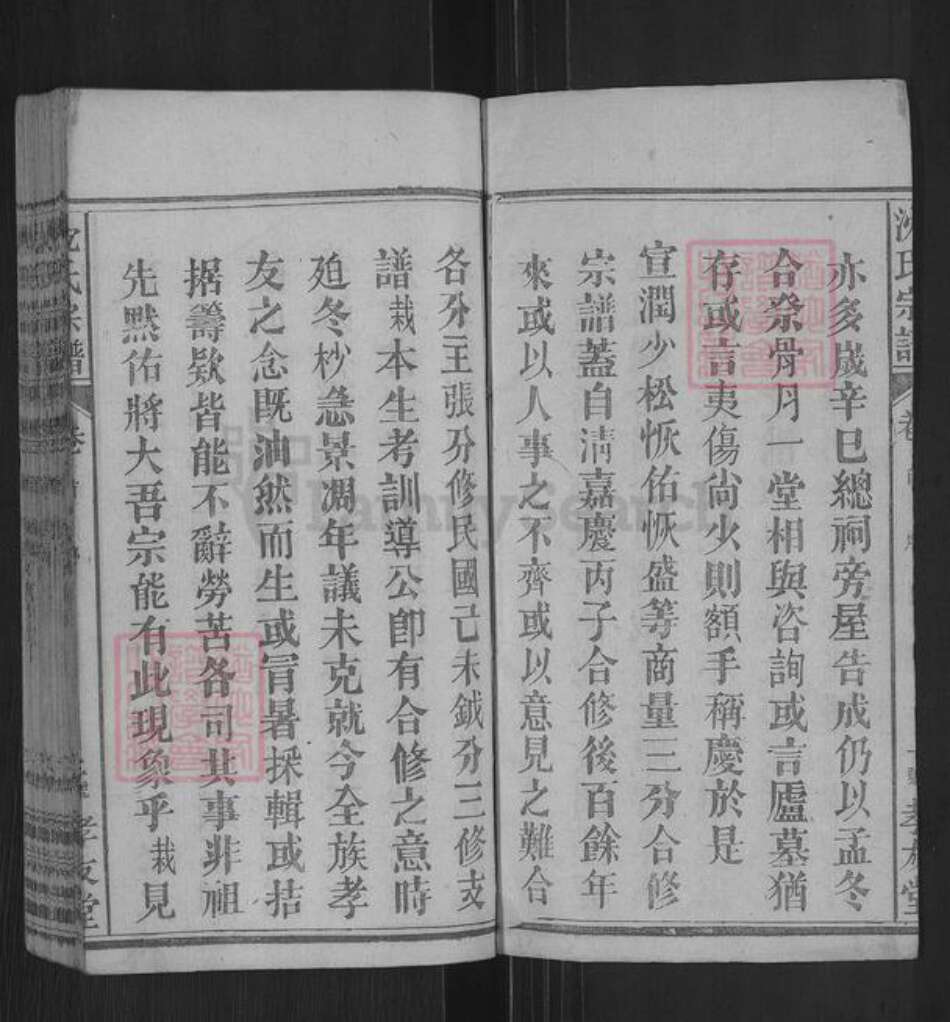 沈氏宗譜
孝友堂
亦多歲辛巳總祠旁屋告成仍以孟冬
合祭骨月一堂相與咨詢或言廬墓猶
存或言夷傷尙少則額手稱慶於是
宣潤少松恢佑恢盛等商量三分合修
宗譜蓋自淸嘉慶丙子合修後百餘年
來或以人事之不齊或以意見之難合
各分主張分修民國己未鉞分三修支
譜栽本生考訓導公卽有合修之意時
廹冬杪急景凋年議未克就今全族孝
友之念旣油然而生或冒暑採輯或拮
据籌欵皆能不辭勞苦各司其事非祖
先默佑將大吾宗能有此現象乎栽見
沈氏宗譜
孝友堂
FamilySearch